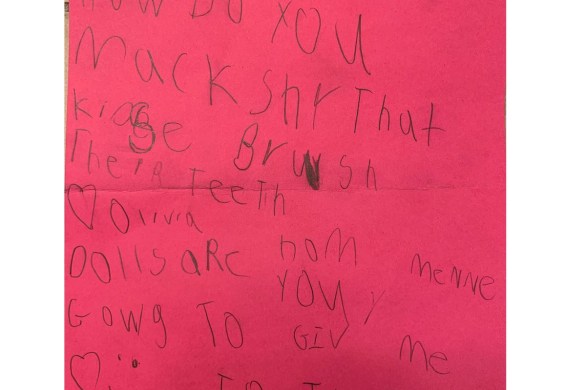 HOW DO YOU
mack Shr That
kidse Bruwsh
Thera Teeth
♡ Olivia
Dolls aRe hoM menne
Gowg To You Giv me